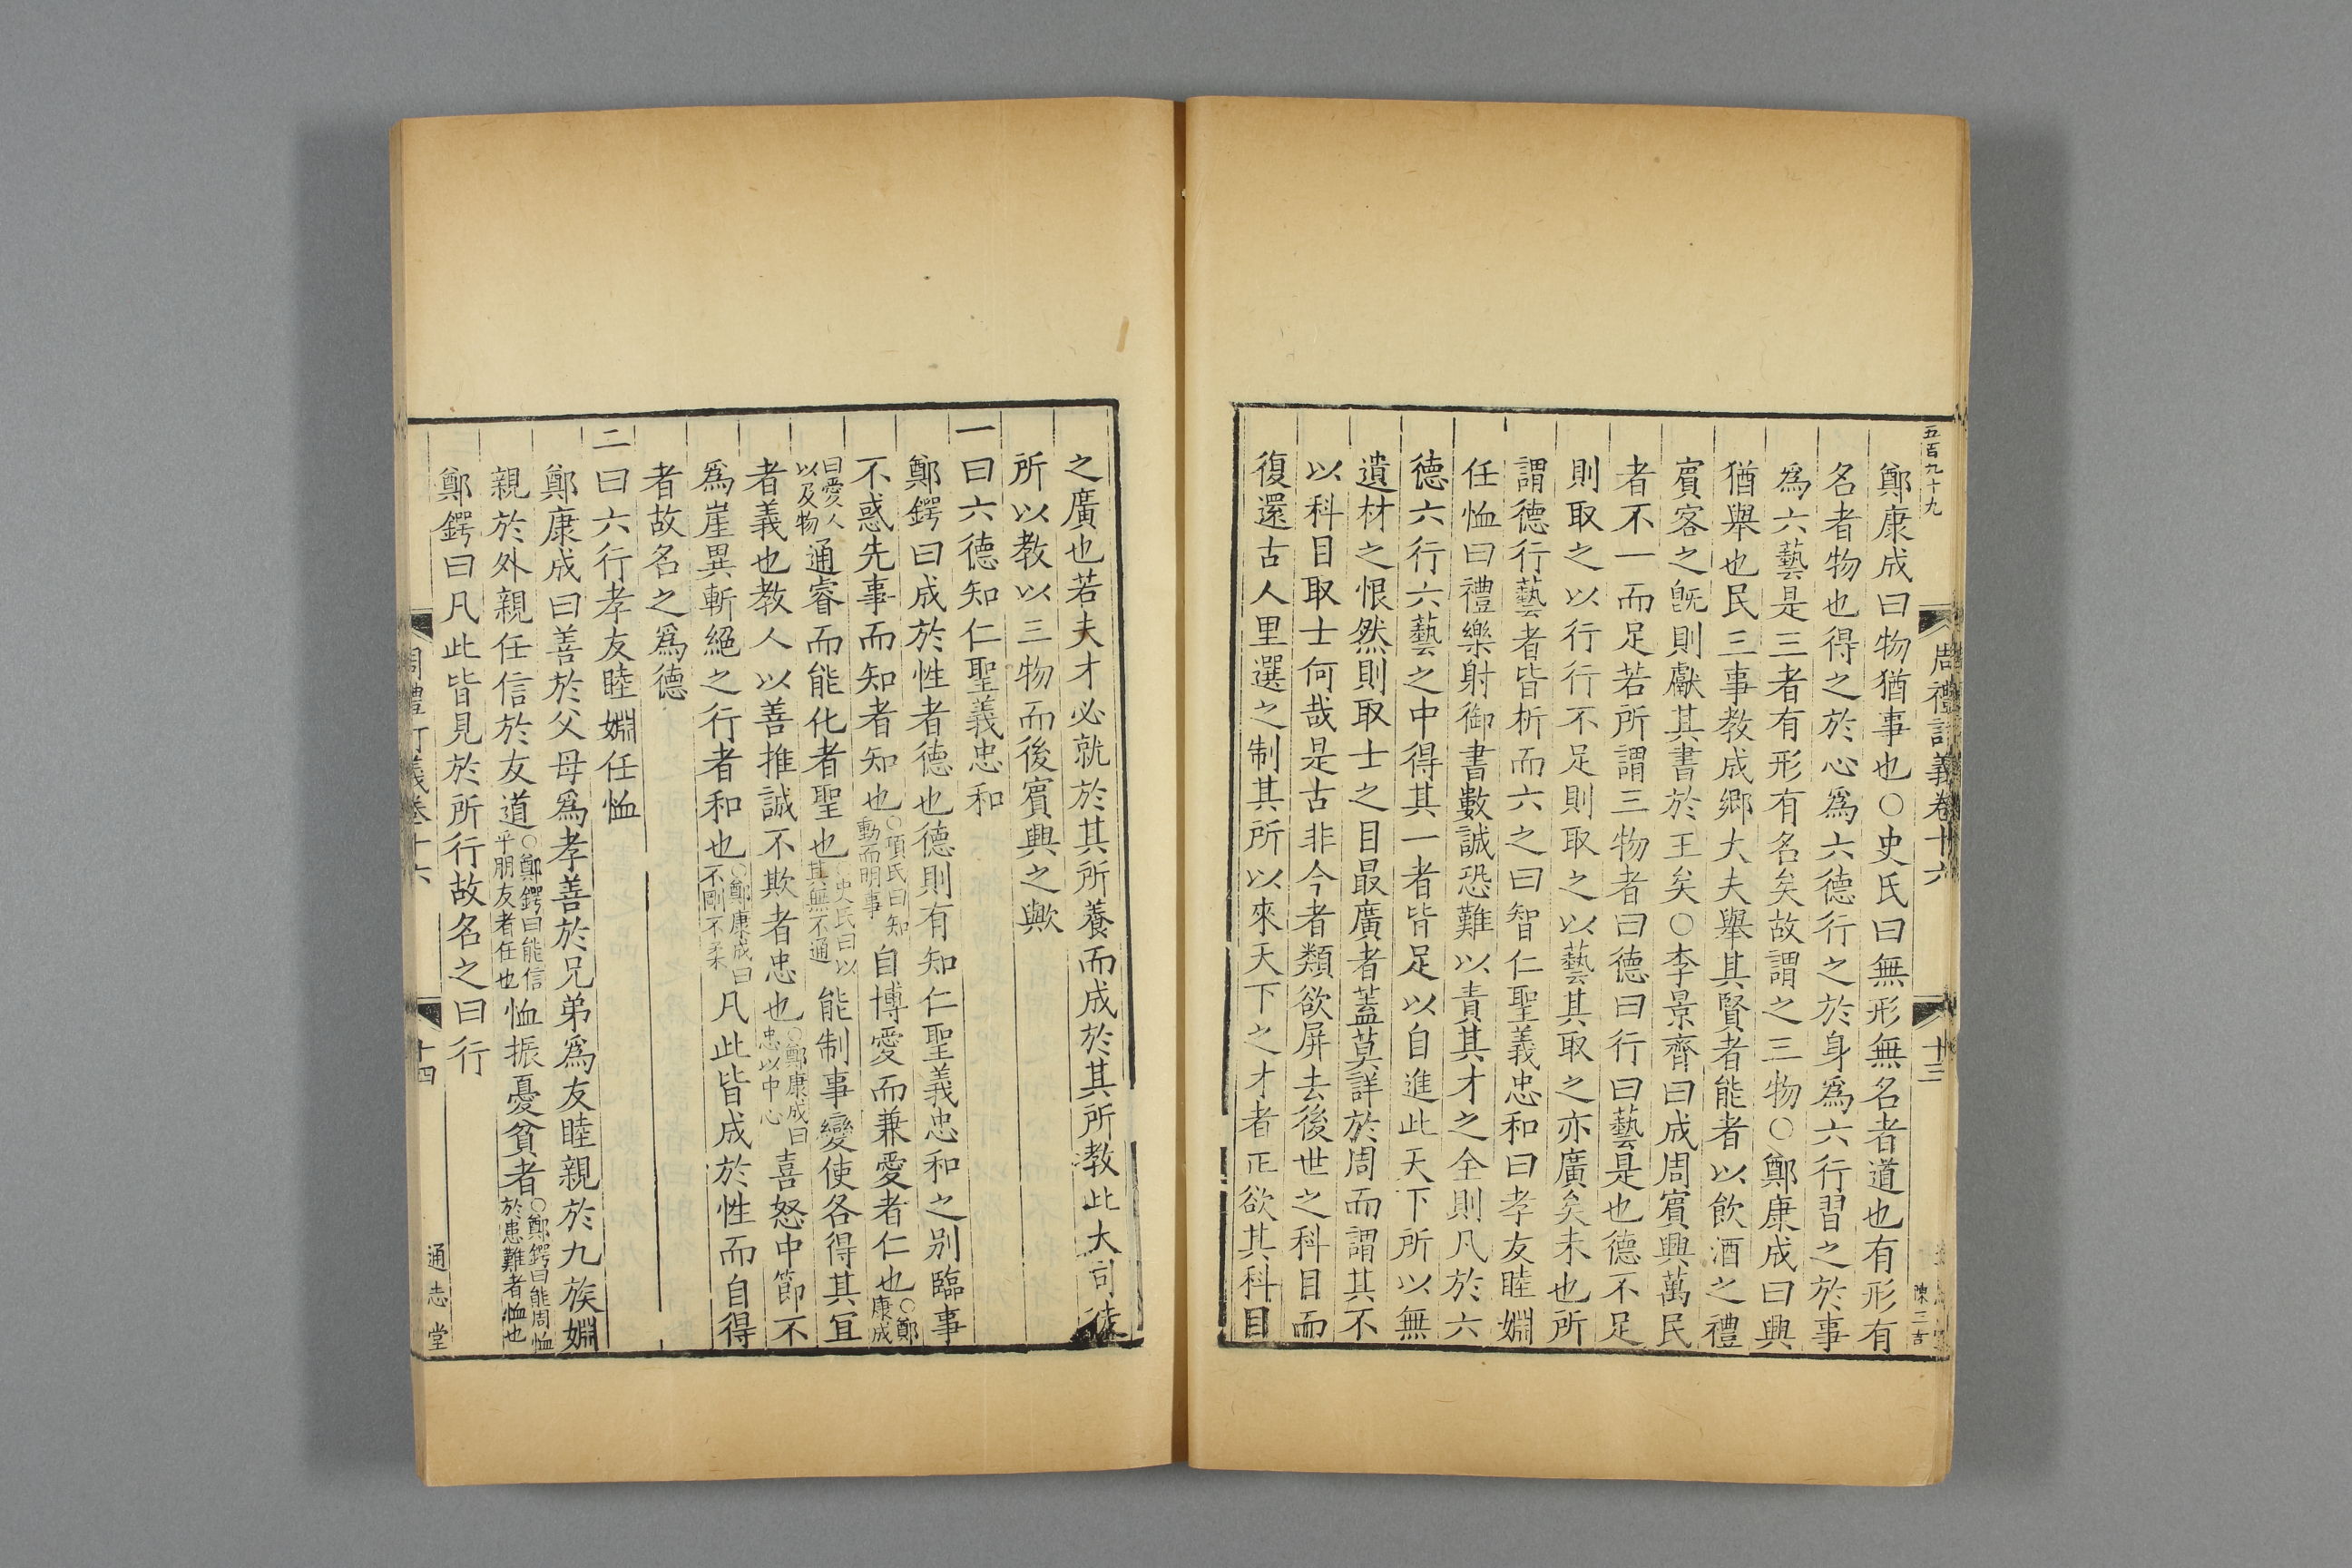 五百九十九
周禮訂義卷十六
十三
陳三吉
鄭康成曰物猶事也○史氏曰無形無名者道也有形有
名者物也得之於心爲六德行之於身爲六行習之於事
爲六藝是三者有形有名矣故謂之三物○鄭康成曰興
猶舉也民三事教成鄉大夫舉其賢者能者以飲酒之禮
賓客之旣則獻其書於王矣○李景齊曰成周賓興萬民
者不一而足若所謂三物者曰德曰行曰藝是也德不足
則取之以行行不足則取之以藝其取之亦廣矣未也所
謂德行藝者皆析而六之曰智仁聖義忠和曰孝友睦婣
任恤曰禮樂射御書數誠恐難以責其才之全則凡於六
德六行六藝之中得其一者皆足以自進此天下所以無
遺材之恨然則取士之目最廣者蓋莫詳於周而謂其不
以科目取士何哉是古非今者類欲屏去後世之科目而
復還古人里選之制其所以來天下之才者正欲其科目
之廣也若夫才必就於其所養而成於其所教此大司徒
所以教以三物而後賓興之歟
一曰六德知仁聖義忠和
鄭鍔曰成於性者德也德則有知仁聖義忠和之别臨事
不惑先事而知者知也○項氏曰知動而明事自博愛而兼愛者仁也○鄭康成
曰愛人以及物通睿而能化者聖也史氏曰以其無不通能制事變使各得其宜
者義也教人以善推誠不欺者忠也○鄭康成曰忠以中心喜怒中節不
爲崖異斬絕之行者和也○鄭康成曰不剛不柔凡此皆成於性而自得
者故名之爲德
二曰六行孝友睦婣任恤
鄭康成曰善於父母爲孝善於兄弟爲友睦親於九族婣
親於外親任信於友道○鄭鍔曰能信乎朋友者任也恤振憂貧者○鄭鍔曰能周恤於患難者恤也
鄭鍔曰凡此皆見於所行故名之曰行
周禮訂義卷十六
十四
通志堂